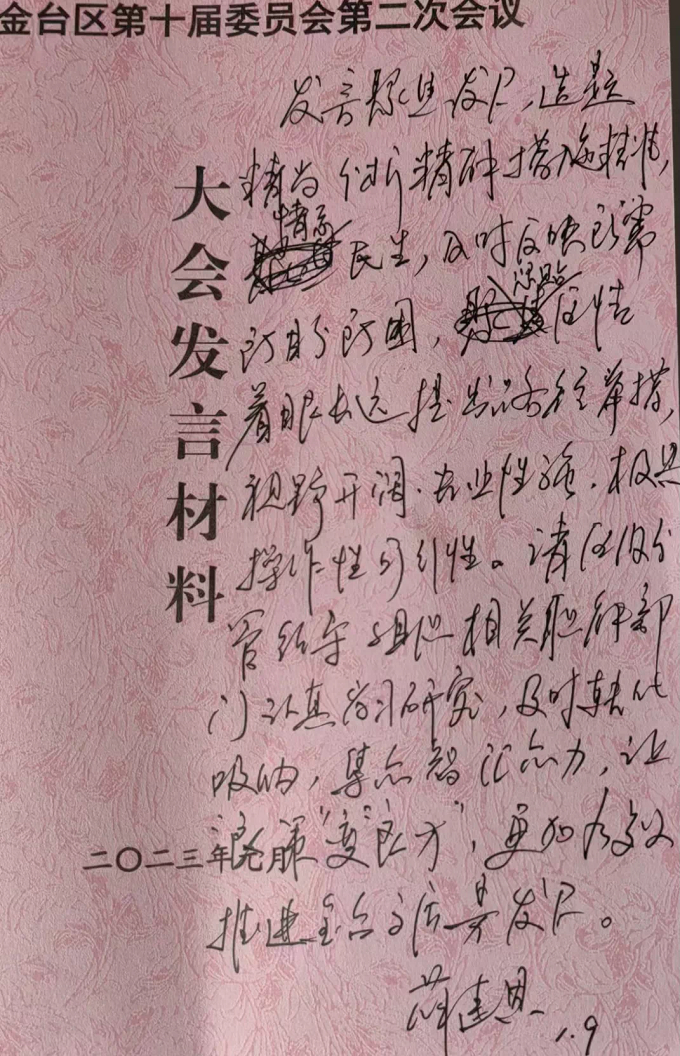 金台区第十届委员会第二次会议
大会发言材料
二〇二三年元月
发言聚焦发展,选题
精当 分析精研 措施精准,
情系民生,及时反映所需
所盼所困,
着眼长远 提出举措,
视野开阔.专业性强.极具
操作性可行性。请区政府
组织相关职能部
门认真学习研究,及时转化
吸纳,集众智汇众力,让
"良策"变"良方",更加有效
推进金台高质量发展。
薛建恩
1.9